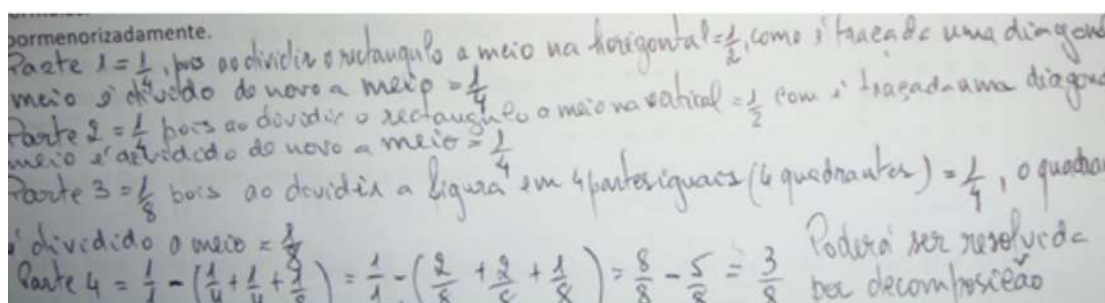 pormenorizadamente.
Parte 1 = 1/4, pois ao dividir o rectangulo a meio na horizontal = 1/2, como é traçada uma diagonal
meio é dividido de novo a meio = 1/4
Parte 2 = 1/4 pois ao dividir o rectangulo a meio na vertical = 1/2 com é traçada uma diagonal
meio é dividido de novo a meio = 1/4
Parte 3 = 1/8 pois ao dividir a figura em 4 partes iguais (4 quadrantes) = 1/4, o quadran
é dividido a meio = 1/8
Parte 4 = 1/1 - (1/4 + 1/4 + 1/8) = 1/1 - (2/8 + 2/8 + 1/8) = 8/8 - 5/8 = 3/8
Poderá ser resolvida
por decomposição